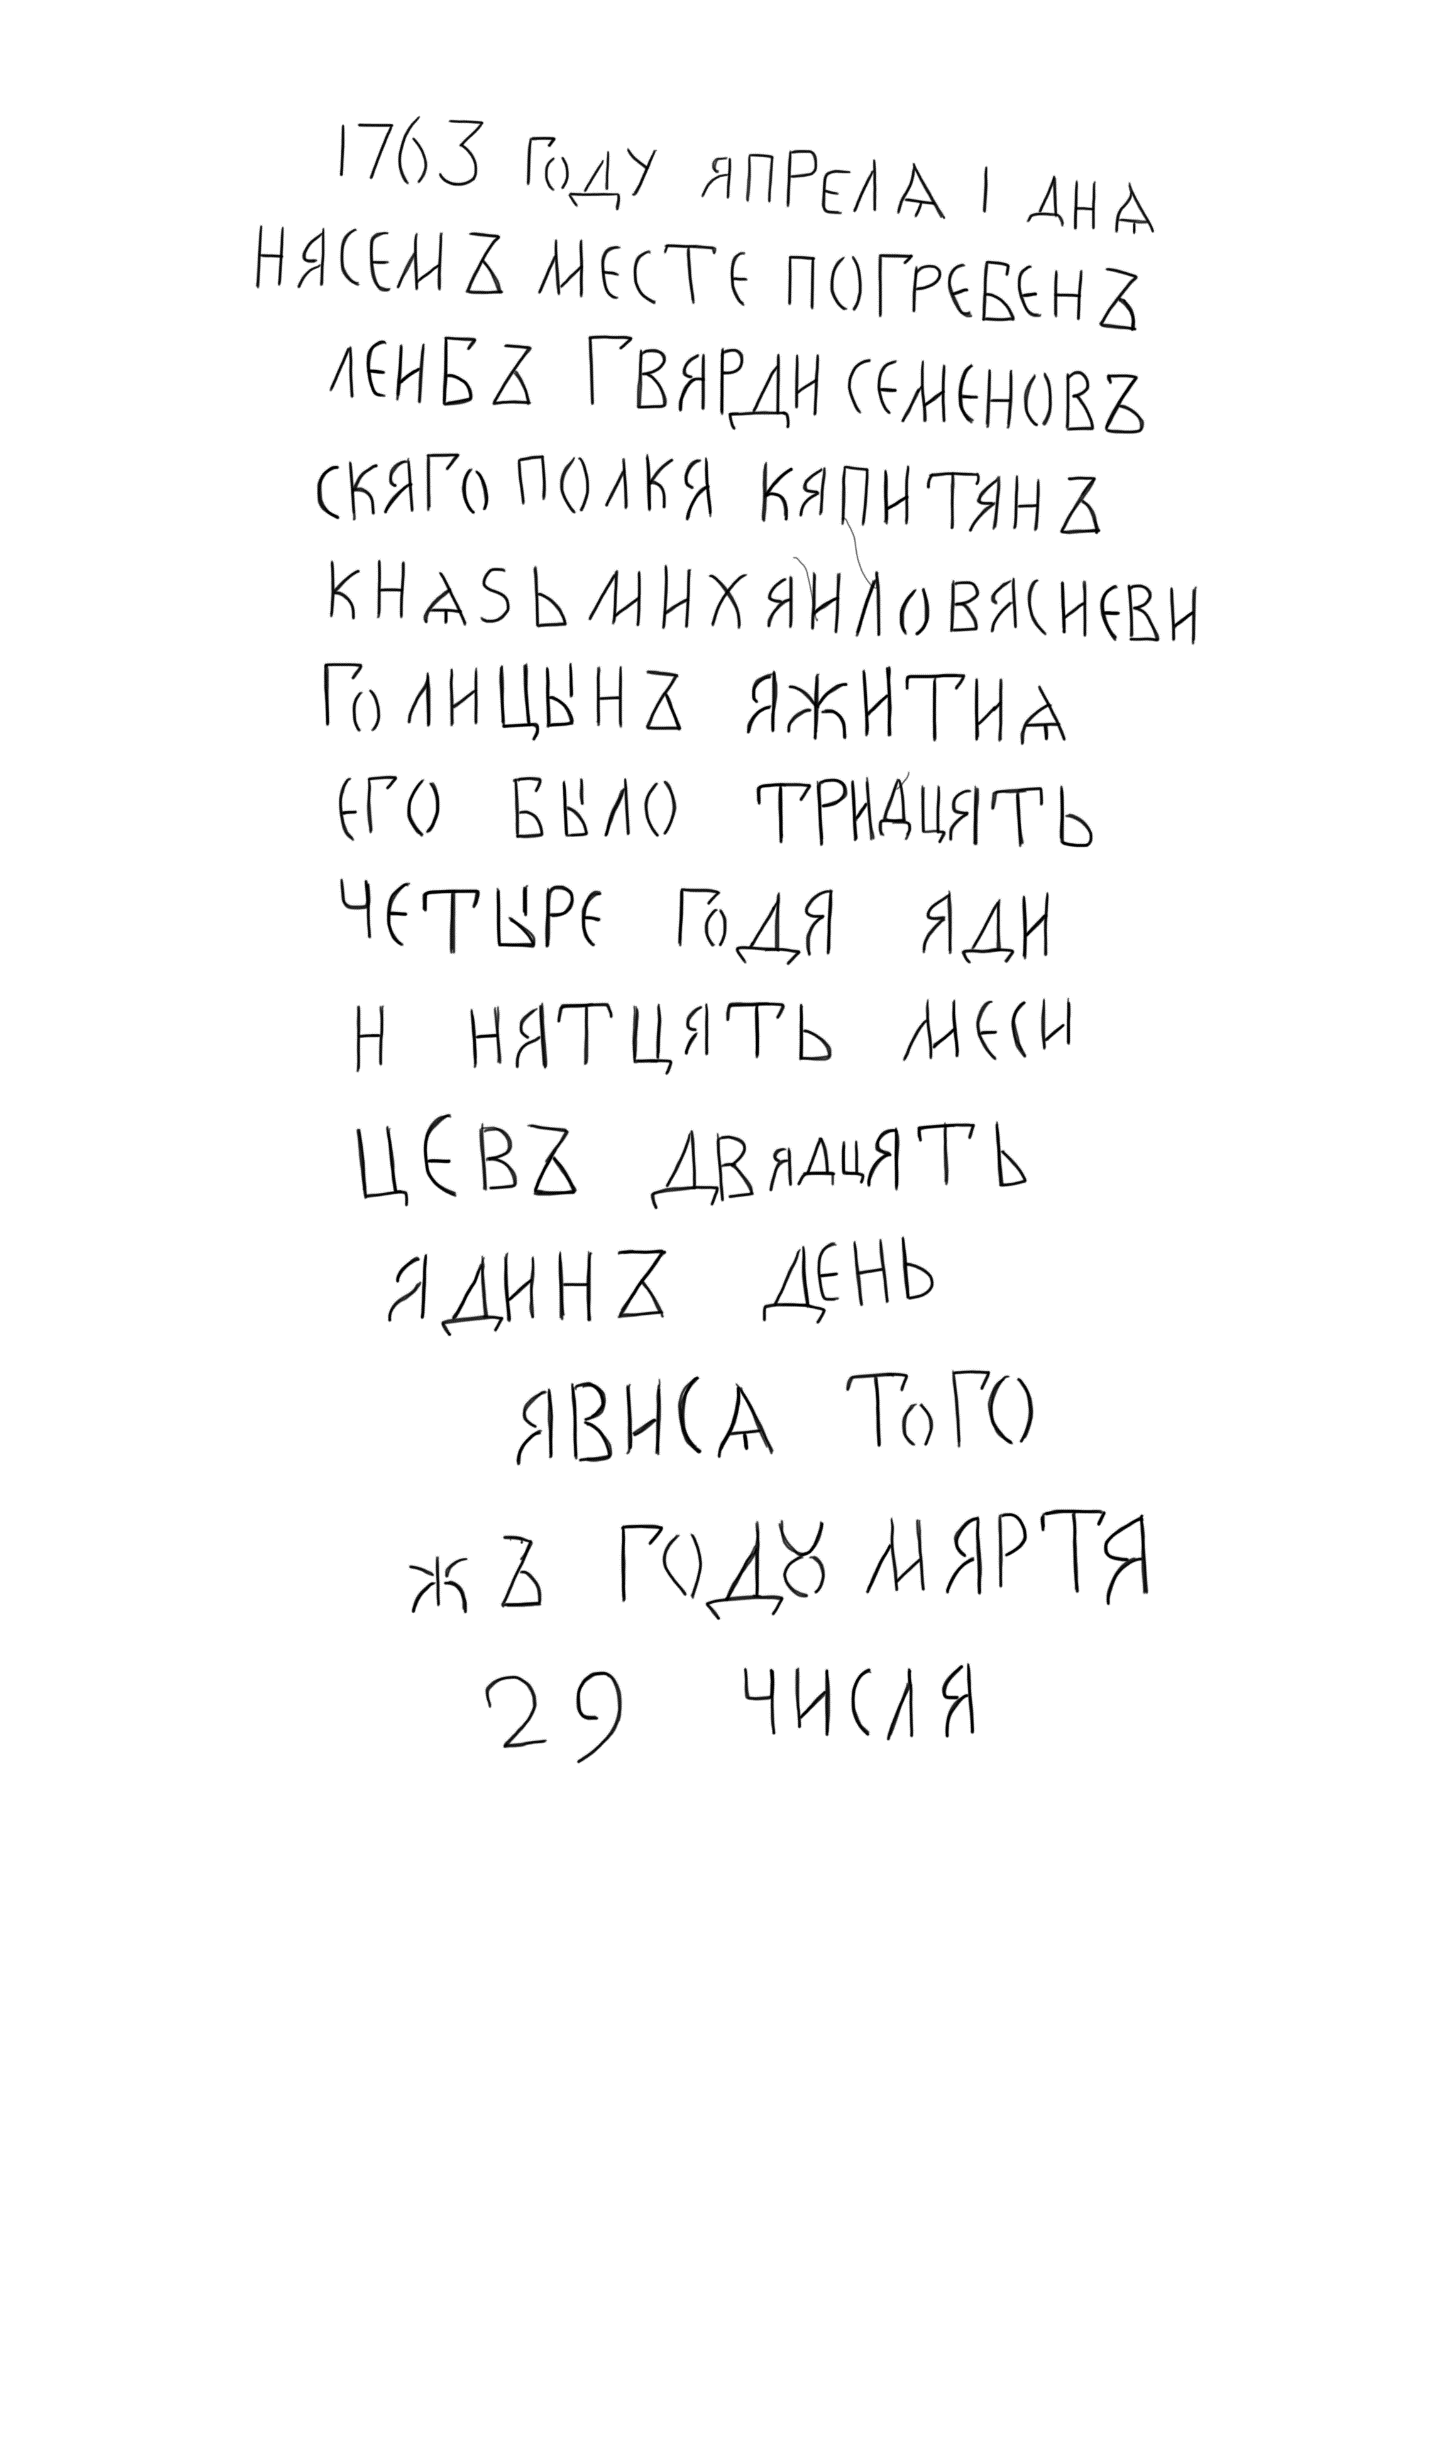 1763 ГОДУ АПРЕЛѦ 1 ДНѦ
НАСЕМЪ МЕСТЕ ПОГРЕБЕНЪ
ЛЕИБЪ ГВАРДИ СЕМЕНОВЪ
СКАГО ПОЛКА КАПИТАНЪ
КНѦЅЬ МИХАИЛОВАСИЕВИ
ГОЛИЦЫНЪ АЖИТИѦ
ЕГО БЫЛО ТРИДЦАТЬ
ЧЕТЫРЕ ГОДА АДИ
Н НАТЦАТЬ МЕСИ
ЦЕВЪ ДВАДЦАТЬ
АДИНЪ ДЕНЬ
АВИСѦ ТОГО
ЖЪ ГОДꙋ МАРТА
29 ЧИСЛА